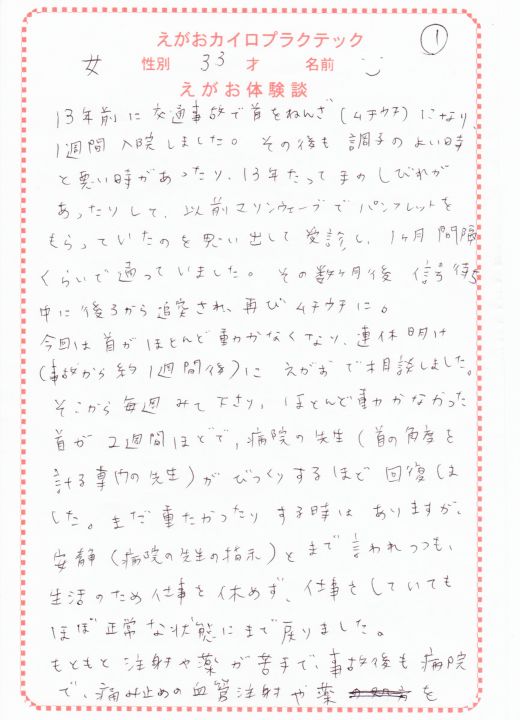 えがおカイロプラクテック
①
女 性別 33 才 名前
えがお体験談
13年前に交通事故で首をねんざ(ムチウチ)になり、
1週間入院しました。その後も調子のよい時
と悪い時があったり、13年たって手のしびれが
あったりして、以前マリンウェーブでパンフレットを
もらっていたのを思い出して受診し、1ヶ月間隔
くらいで通っていました。その数ヶ月後 信号待ち
中に後ろから追突され、再びムチウチに。
今回は首がほとんど動かなくなり、連休明け
(事故から約1週間後)に えがおで相談しました。
そこから毎週みて下さり、ほとんど動かなかった
首が2週間ほどで、病院の先生(首の角度を
計る専門の先生)がびっくりするほど回復しま
した。まだ重たかったりする時はありますが、
安静(病院の先生の指示)とまで言われつつも、
生活のため仕事を休めず、仕事をしていても
ほぼ正常な状態にまで戻りました。
もともと注射や薬が苦手で、事故後も病院
で、痛み止めの血管注射や薬を